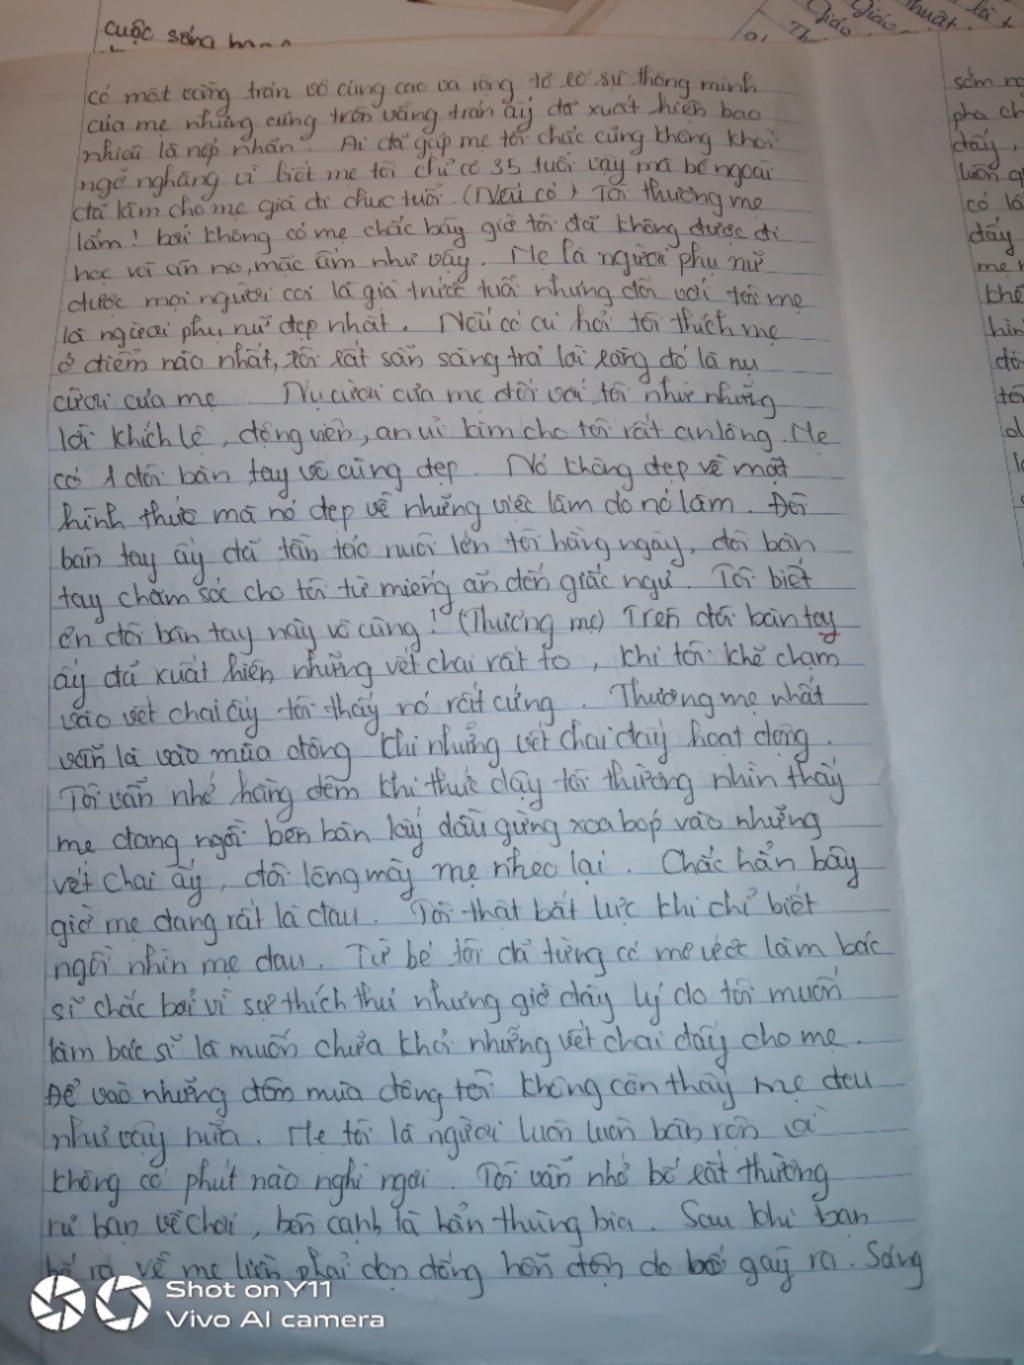 cuộc sống
Giáo
Giáo
thuật
có một vầng trán vô cùng cao và rộng tỏ rõ sự thông minh
của mẹ nhưng cũng trên vầng trán ấy đã xuất hiện bao
nhiêu là nếp nhăn. Ai đã gặp mẹ tôi chắc cũng không khỏi
ngỡ ngàng vì biết mẹ tôi chỉ có 35 tuổi vậy mà bề ngoài
đã làm cho mẹ già đi chục tuổi. (Nếu có) Tôi thương mẹ
lắm! bởi không có mẹ chắc bây giờ tôi đã không được đi
học và ăn no, mặc ấm như vậy. Mẹ là người phụ nữ
được mọi người coi là già trước tuổi nhưng đối với tôi mẹ
là người phụ nữ đẹp nhất. Nếu có ai hỏi tôi thích mẹ
ở điểm nào nhất, tôi rất sẵn sàng trả lời rằng đó là nụ
cười của mẹ. Nụ cười của mẹ đối với tôi như những
lời khích lệ, động viên, an ủi làm cho tôi rất an lòng. Mẹ
có 1 đôi bàn tay vô cùng đẹp. Nó không đẹp về mặt
hình thức mà nó đẹp về những việc làm do nó làm. Đôi
bàn tay ấy đã tần tảo nuôi lớn tôi hằng ngày, đôi bàn
tay chăm sóc cho tôi từ miếng ăn đến giấc ngủ. Tôi biết
ơn đôi bàn tay này vô cùng! (Thương mẹ) Trên đôi bàn tay
ấy đã xuất hiện những vết chai rất to, khi tôi khẽ chạm
vào vết chai ấy tôi thấy nó rất cứng. Thương mẹ nhất
vẫn là vào mùa đông khi những vết chai đấy hoạt động.
Tôi vẫn nhớ hằng đêm khi thức dậy tôi thường nhìn thấy
mẹ đang ngồi bên bàn lấy dầu gừng xoa bóp vào những
vết chai ấy, đôi lông mày mẹ nheo lại. Chắc hẳn bây
giờ mẹ đang rất là đau. Tôi thật bất lực khi chỉ biết
ngồi nhìn mẹ đau. Từ bé tôi đã từng có mơ ước làm bác
sĩ chắc bởi vì sự thích thú nhưng giờ đây lý do tôi muốn
làm bác sĩ là muốn chữa khỏi những vết chai đấy cho mẹ.
Để vào những đêm mùa đông tôi không còn thấy mẹ đau
như vậy nữa. Mẹ tôi là người luôn luôn bận rộn vì
không có phút nào nghỉ ngơi. Tôi vẫn nhớ bố rất thường
rủ bạn về chơi, bên cạnh là hẳn thùng bia. Sau khi bạn
bố ra về mẹ luôn phải dọn đống hỗn độn do bố gây ra. Sáng
sớm
pha
đấy,
luôn
có
đấy
mẹ
Shot on Y11
Vivo AI camera